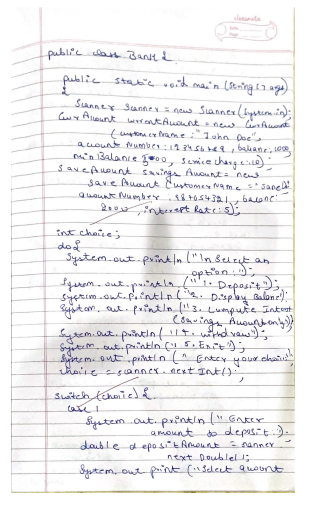 public class Bank {
public static void main (String [] args)
{
Scanner scanner = new Scanner (System.in);
CurAcount currentAcount = new CurAcount
(customerName : "John Doe",
acount Number : 123456789, balance: 1000,
min Balance 5000, Service charge: 10);
SaveAcount savings Acount = new
SaveAcount CustomerName = "Jane D
acount Number, 987654321, balance:
2000, interest Rate: 5);
int choice;
do {
System.out.println ("\n Select an
option:");
System.out.println ("1. Deposit");
System.out.println ("2. Display Balance");
System.out.println ("3. Compute Interest
(Savings Acount only)")
System.out.println ("4. withdraw");
System.out.println ("5. Exit");
System.out.println ("Enter your choice"
choice = scanner.next Int();
switch (choice) {
case 1
System.out.println ("Enter
amount to deposit:");
double depositAmount = scanner
next Double();
System.out print ("Select acount